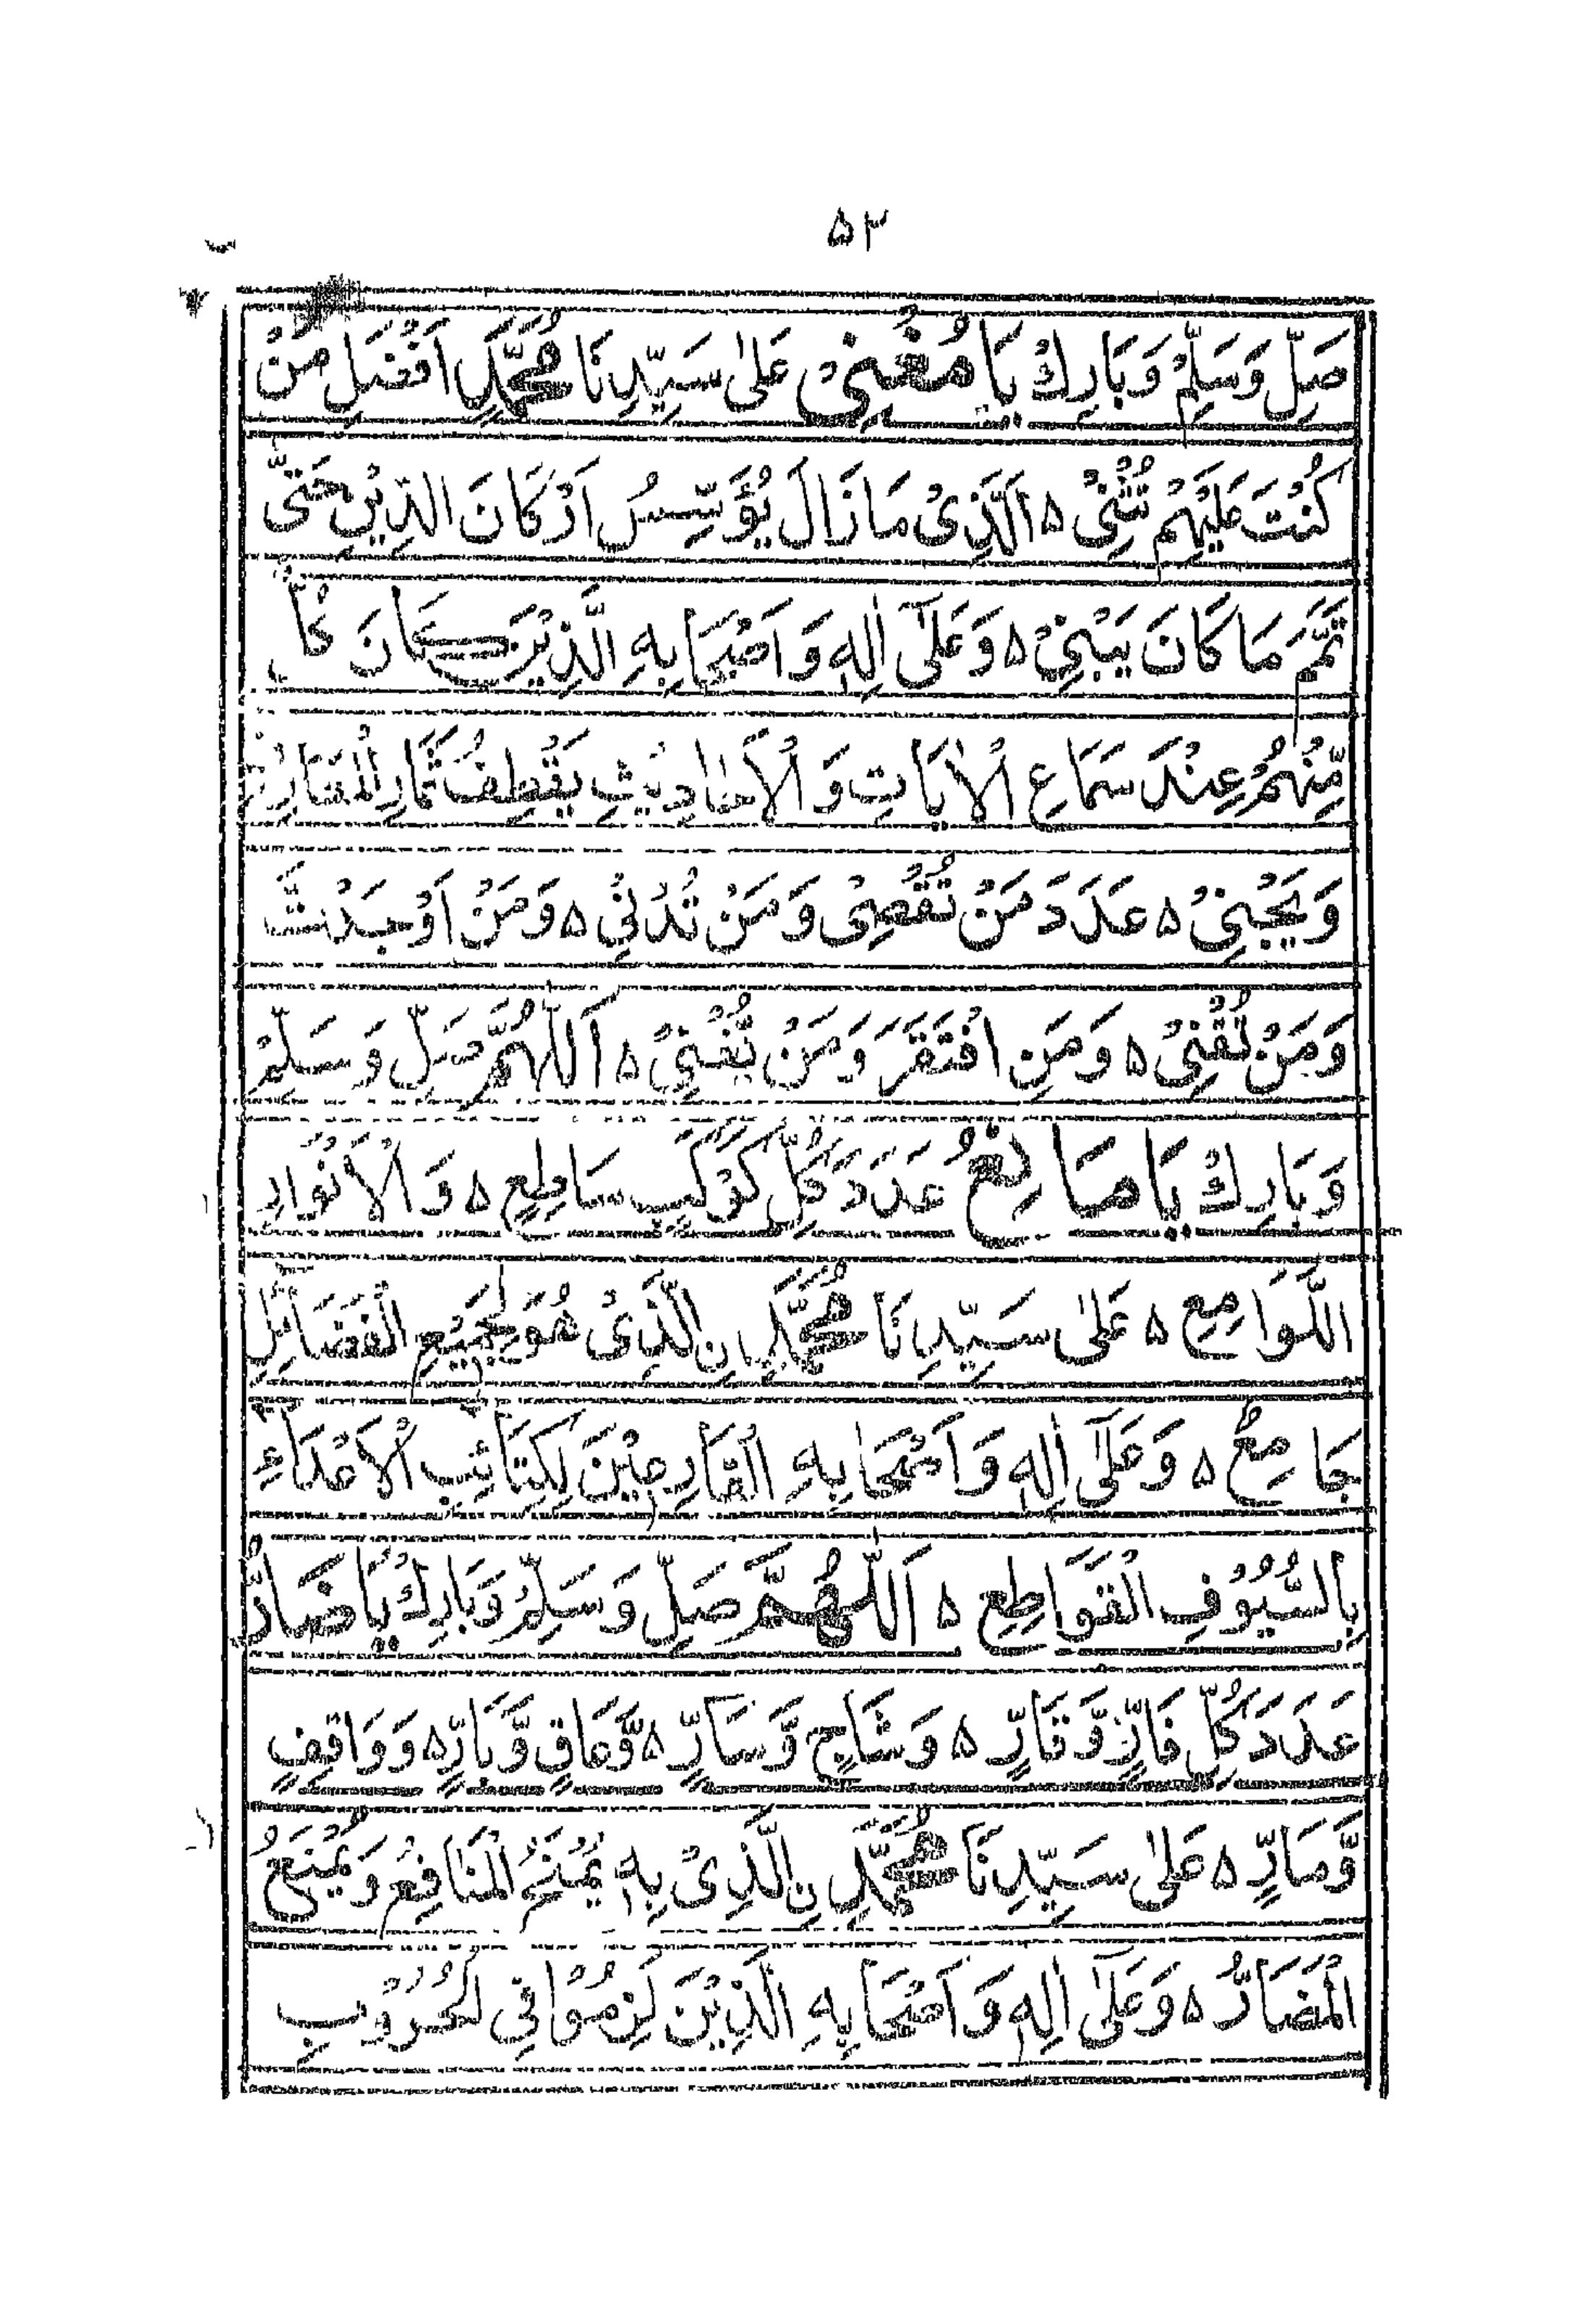 ۵۲
صَلِّ وَسَلِّمْ وَبَارِكْ يَا مُغْنِيْ عَلٰى سَيِّدِنَا مُحَمَّدٍ اَفْضَلِ مَنْ
كُنْتَ عَلَيْهِمْ تُثْنِيْ ۵ اَلَّذِيْ مَا زَالَ يُؤَسِّسُ اَرْكَانَ الدِّيْنِ حَتّٰى
تَمَّمَ مَا كَانَ يَبْنِيْ ۵ وَعَلٰٓى اٰلِهٖ وَاَصْحَابِهِ الَّذِيْنَ كَانَ كُلٌّ
مِّنْهُمْ عِنْدَ سَمَاعِ الْاٰيَاتِ وَالْاَحَادِيْثِ يَقْطِفُ ثِمَارَ
وَيَجْنِيْ ۵ عَدَدَ مَنْ تُقْصِيْ وَمَنْ تُدْنِيْ ۵ وَمَنْ اَوْجَدْتَّ
وَمَنْ تُفْنِيْ ۵ وَمَنِ افْتَقَرَ وَمَنْ تُغْنِيْ ۵ اَللّٰهُمَّ صَلِّ وَسَلِّمْ
وَبَارِكْ يَا مَانِعُ عَدَدَ كُلِّ كَوْكَبٍ سَاطِعٍ ۵ وَالْاَنْوَارِ
اللَّوَامِعِ ۵ عَلٰى سَيِّدِنَا مُحَمَّدِ نِ الَّذِيْ هُوَ لِجَمِيْعِ الْفَضَائِلِ
جَامِعٌ ۵ وَعَلٰٓى اٰلِهٖ وَاَصْحَابِهِ لِكَتَائِبِ الْاَعْدَاءِ
بِالسُّيُوْفِ الْقَوَاطِعِ ۵ اَللّٰهُمَّ صَلِّ وَسَلِّمْ وَبَارِكْ يَا ضَارُّ
عَدَدَ كُلِّ فَارٍّ وَّقَارٍّ ۵ وَشَاجٍ وَّسَارٍّ ۵ وَّعَاقٍ وَّبَارٍّ ۵ وَوَاقِفٍ
وَّمَارٍّ ۵ عَلٰى سَيِّدِنَا مُحَمَّدِ نِ الَّذِيْ بِهٖ الْمَنَافِعُ وَيُمْنَعُ
الْمَضَارُّ ۵ وَعَلٰٓى اٰلِهٖ وَاَصْحَابِهِ الَّذِيْنَ لَزِمُوْا فِي الْحُرُوْبِ